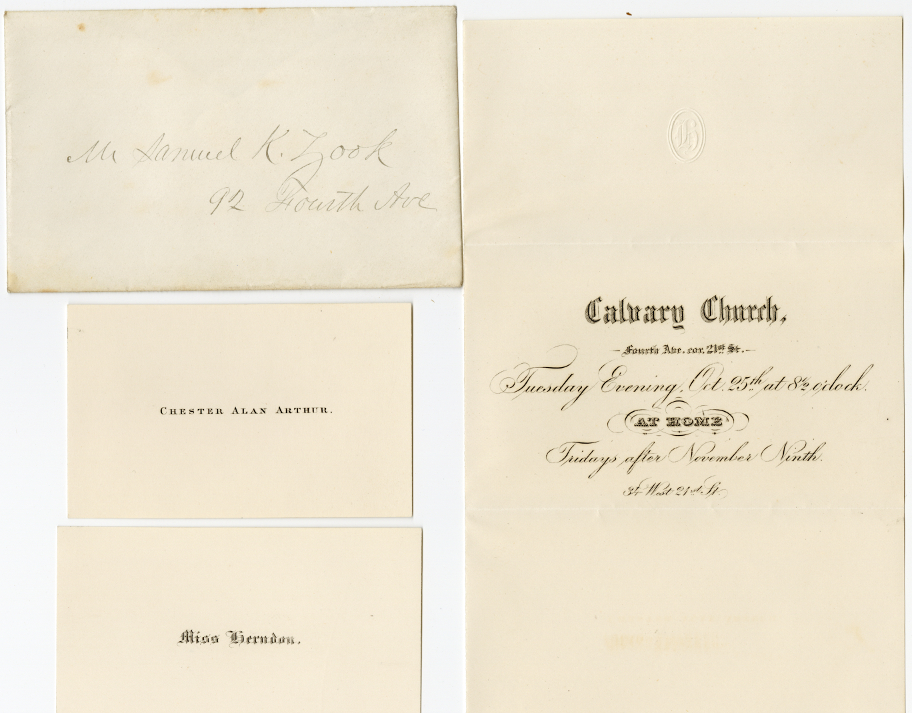 Mr Samuel K. Zook
92 Fourth Ave
CHESTER ALAN ARTHUR.
Miss Herndon.
Calvary Church,
Fourth Ave. cor. 21st St.
Tuesday Evening, Oct. 25th at 8½ o'clock.
AT HOME
Fridays after November Ninth.
34 West 21st St.